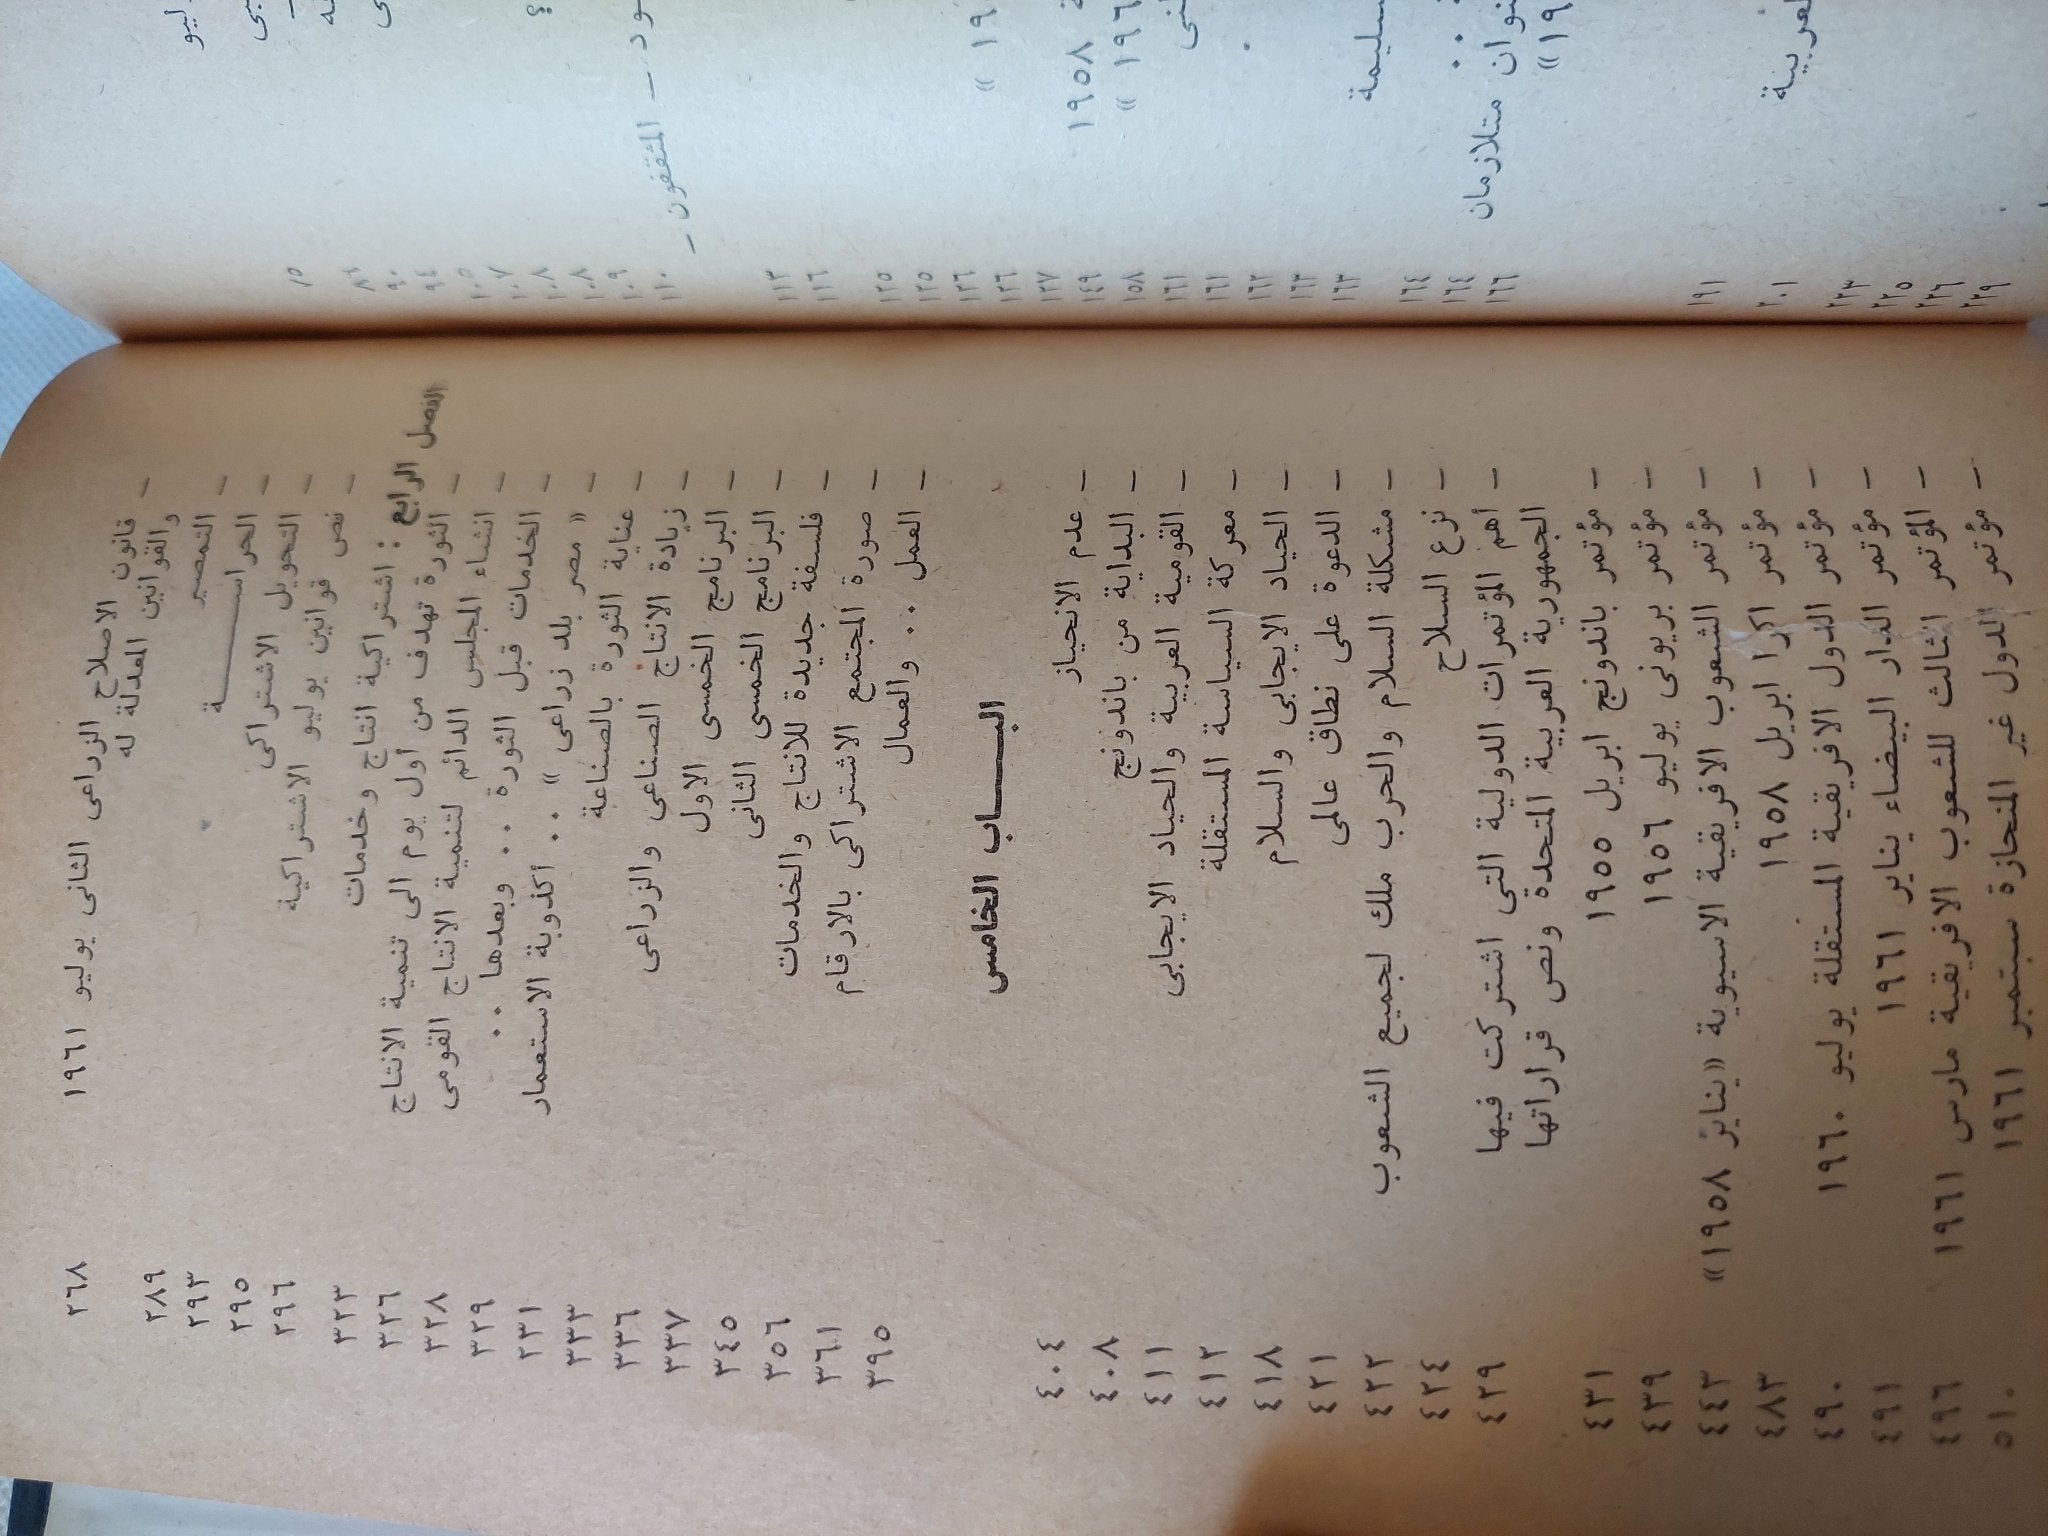 ١٥
٨٦
٩٠
٩٤
١٠٥
١٠٧
١٠٨
١٠٨
١٠٩
ود – المثقفون –
١١٠
١١٣
١١٦
١٢٥
١٢٥
١٢٦
١٢٦
١٩٥٨
١٢٧
١٤٩
١٥٨
١٦١
١٦١
١٦٢
١٦٣
سليمة
١٦٣
١٦٤
نوان متلازمان
١٦٤
١٦٦
١٩١
٢٠١
٢٢٣
٢٢٥
٢٢٦
٢٢٩
– قانون الاصلاح الزراعى الثانى يوليو ١٩٦١ ٢٦٨
والقوانين المعدلة له
– التمصير ٢٨٩
– الحراسة ٢٩٣
– التحويل الاشتراكى ٢٩٥
– نص قوانين يوليو الاشتراكية ٢٩٦
الفصل الرابع : اشتراكية انتاج وخدمات ٣٢٣
– الثورة تهدف من أول يوم الى تنمية الانتاج ٣٢٦
– انشاء المجلس الدائم لتنمية الانتاج القومى ٣٢٨
– الخدمات قبل الثورة ٠٠ وبعدها ٠٠ ٣٢٩
– « مصر بلد زراعى » ٠٠ أكذوبة الاستعمار ٢٣١
– عناية الثورة بالصناعة ٣٣٣
– زيادة الانتاج الصناعى والزراعى ٣٣٦
– البرنامج الخمسى الاول ٣٣٧
– البرنامج الخمسى الثانى ٣٤٥
– فلسفة جديدة للانتاج والخدمات ٣٥٦
– صورة المجتمع الاشتراكى بالارقام ٣٦١
– العمل ٠٠ والعمال ٣٩٥
البـــاب الخامس
– عدم الانحياز ٤٠٤
– البداية من باندونج ٤٠٨
– القومية العربية والحياد الايجابى ٤١١
– معركة السياسة المستقلة ٤١٢
– الحياد الايجابى والسلام ٤١٨
– الدعوة على نطاق عالمى ٤٢١
– مشكلة السلام والحرب ملك لجميع الشعوب ٤٢٢
– نزع السلاح ٤٢٤
– أهم المؤتمرات الدولية التى اشتركت فيها ٤٢٩
الجمهورية العربية المتحدة ونص قراراتها
– مؤتمر باندونج ابريل ١٩٥٥ ٤٣١
– مؤتمر بريونى يوليو ١٩٥٦ ٤٣٩
– مؤتمر الشعوب الافريقية الاسيوية «يناير ١٩٥٨» ٤٤٣
– مؤتمر اكرا ابريل ١٩٥٨ ٤٨٣
– مؤتمر الدول الافريقية المستقلة يوليو ١٩٦٠ ٤٩٠
– مؤتمر الدار البيضاء يناير ١٩٦١ ٤٩١
– المؤتمر الثالث للشعوب الافريقية مارس ١٩٦١ ٤٩٦
– مؤتمر الدول غير المنحازة سبتمبر ١٩٦١ ٥١٠